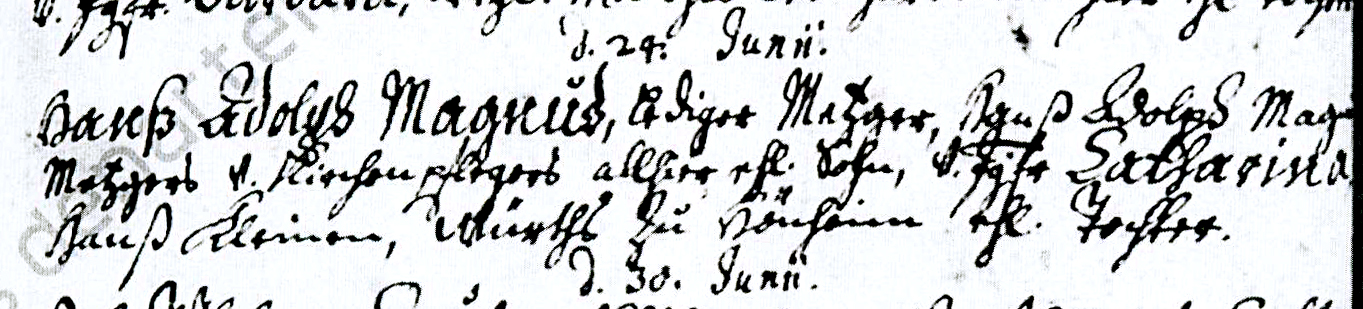 d. 24. Junii.
Hanß Adolph Magnus, lediger Metzger, Hanß Adolph Mag
Metzgers v. Kirchenpflegers allhier ehl. Sohn, v. Jgfr Catharina,
Hanß Kleinen, Würths zu Hönheim ehl. Tochter.
d. 30. Junii.